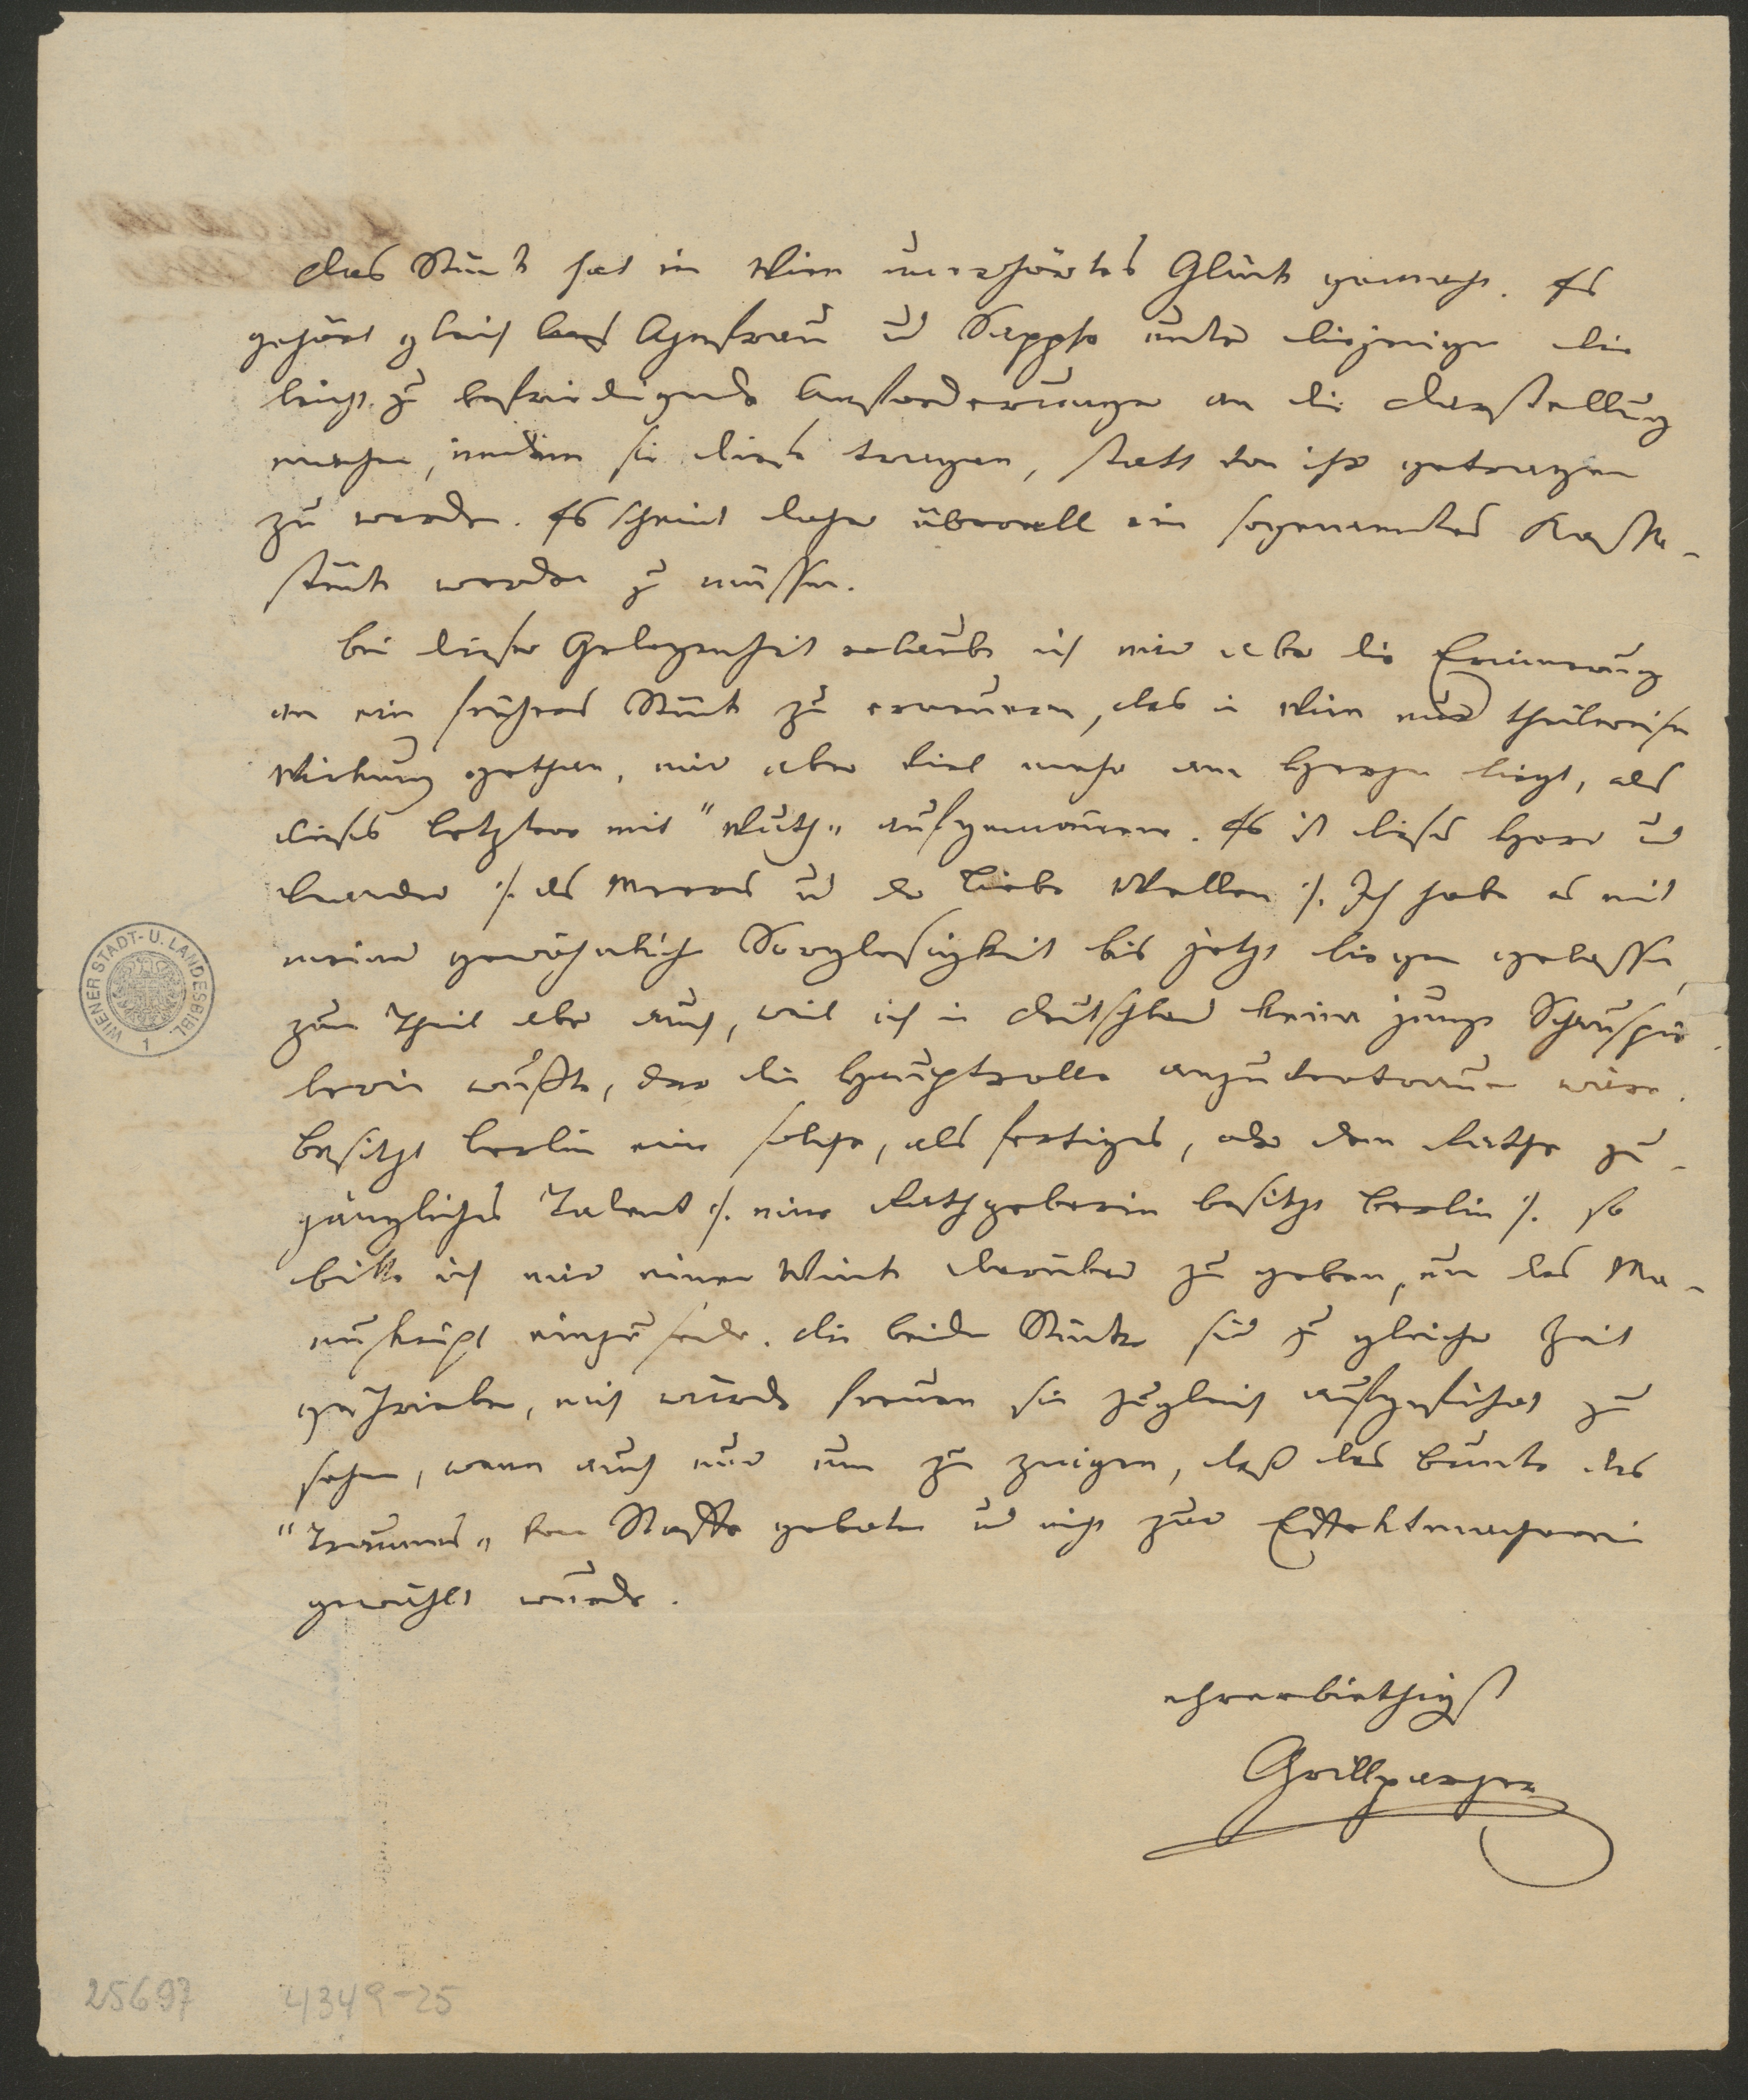 Das Stück hat in Wien unerhörtes Glück gemacht. Es
gehört gleich Ahnfrau und Sappho unter diejenigen die
leicht zu befriedigende Anforderungen an die Darstellung
machen, indem sie diese tragen, statt von ihr getragen
zu werden. Es scheint daher überall ein sogenanntes Kasse-
stück werden zu müssen.
Bei dieser Gelegenheit erlaube ich mir aber die Erinnerung
an ein früheres Stück zu erneuern, das in Wien nur theilweise
Wirkung gethan, mir aber viel mehr am Herzen liegt, als
dieses letztere mit "Wuth" aufgenommene. Es ist dieses Hero und
Leander :/. des Meeres und der Liebe Wellen :/. Ich habe es mit
meiner gewöhnlichen Sorglosigkeit bis jetzt liegen gelassen,
zum Theil aber auch, weil ich in Deutschland keine junge Schauspie
lerin wußte, der die Hauptrolle anzuvertrauen wäre.
Besitzt Berlin eine solche, als fertiges, oder dem Rathe zu-
gängliches Talent :/. eine Rathgeberin besitzt Berlin :/. so
bitte ich mir einen Wink darüber zu geben, um das Ma-
nuskript einzusenden. Die beiden Stücke sind zu gleicher Zeit
geschrieben, mich würde freuen sie zugleich aufgeführt zu
sehen, wenn auch nur um zu zeigen, daß das Bunte des
"Traumes" vom Stoffe geboten und nicht zur Effektmacherei
gewählt wurde.
ehrerbiethigst
Grillparzer
WIENER STADT- U. LANDESBIBL.
1
25697 4349-25